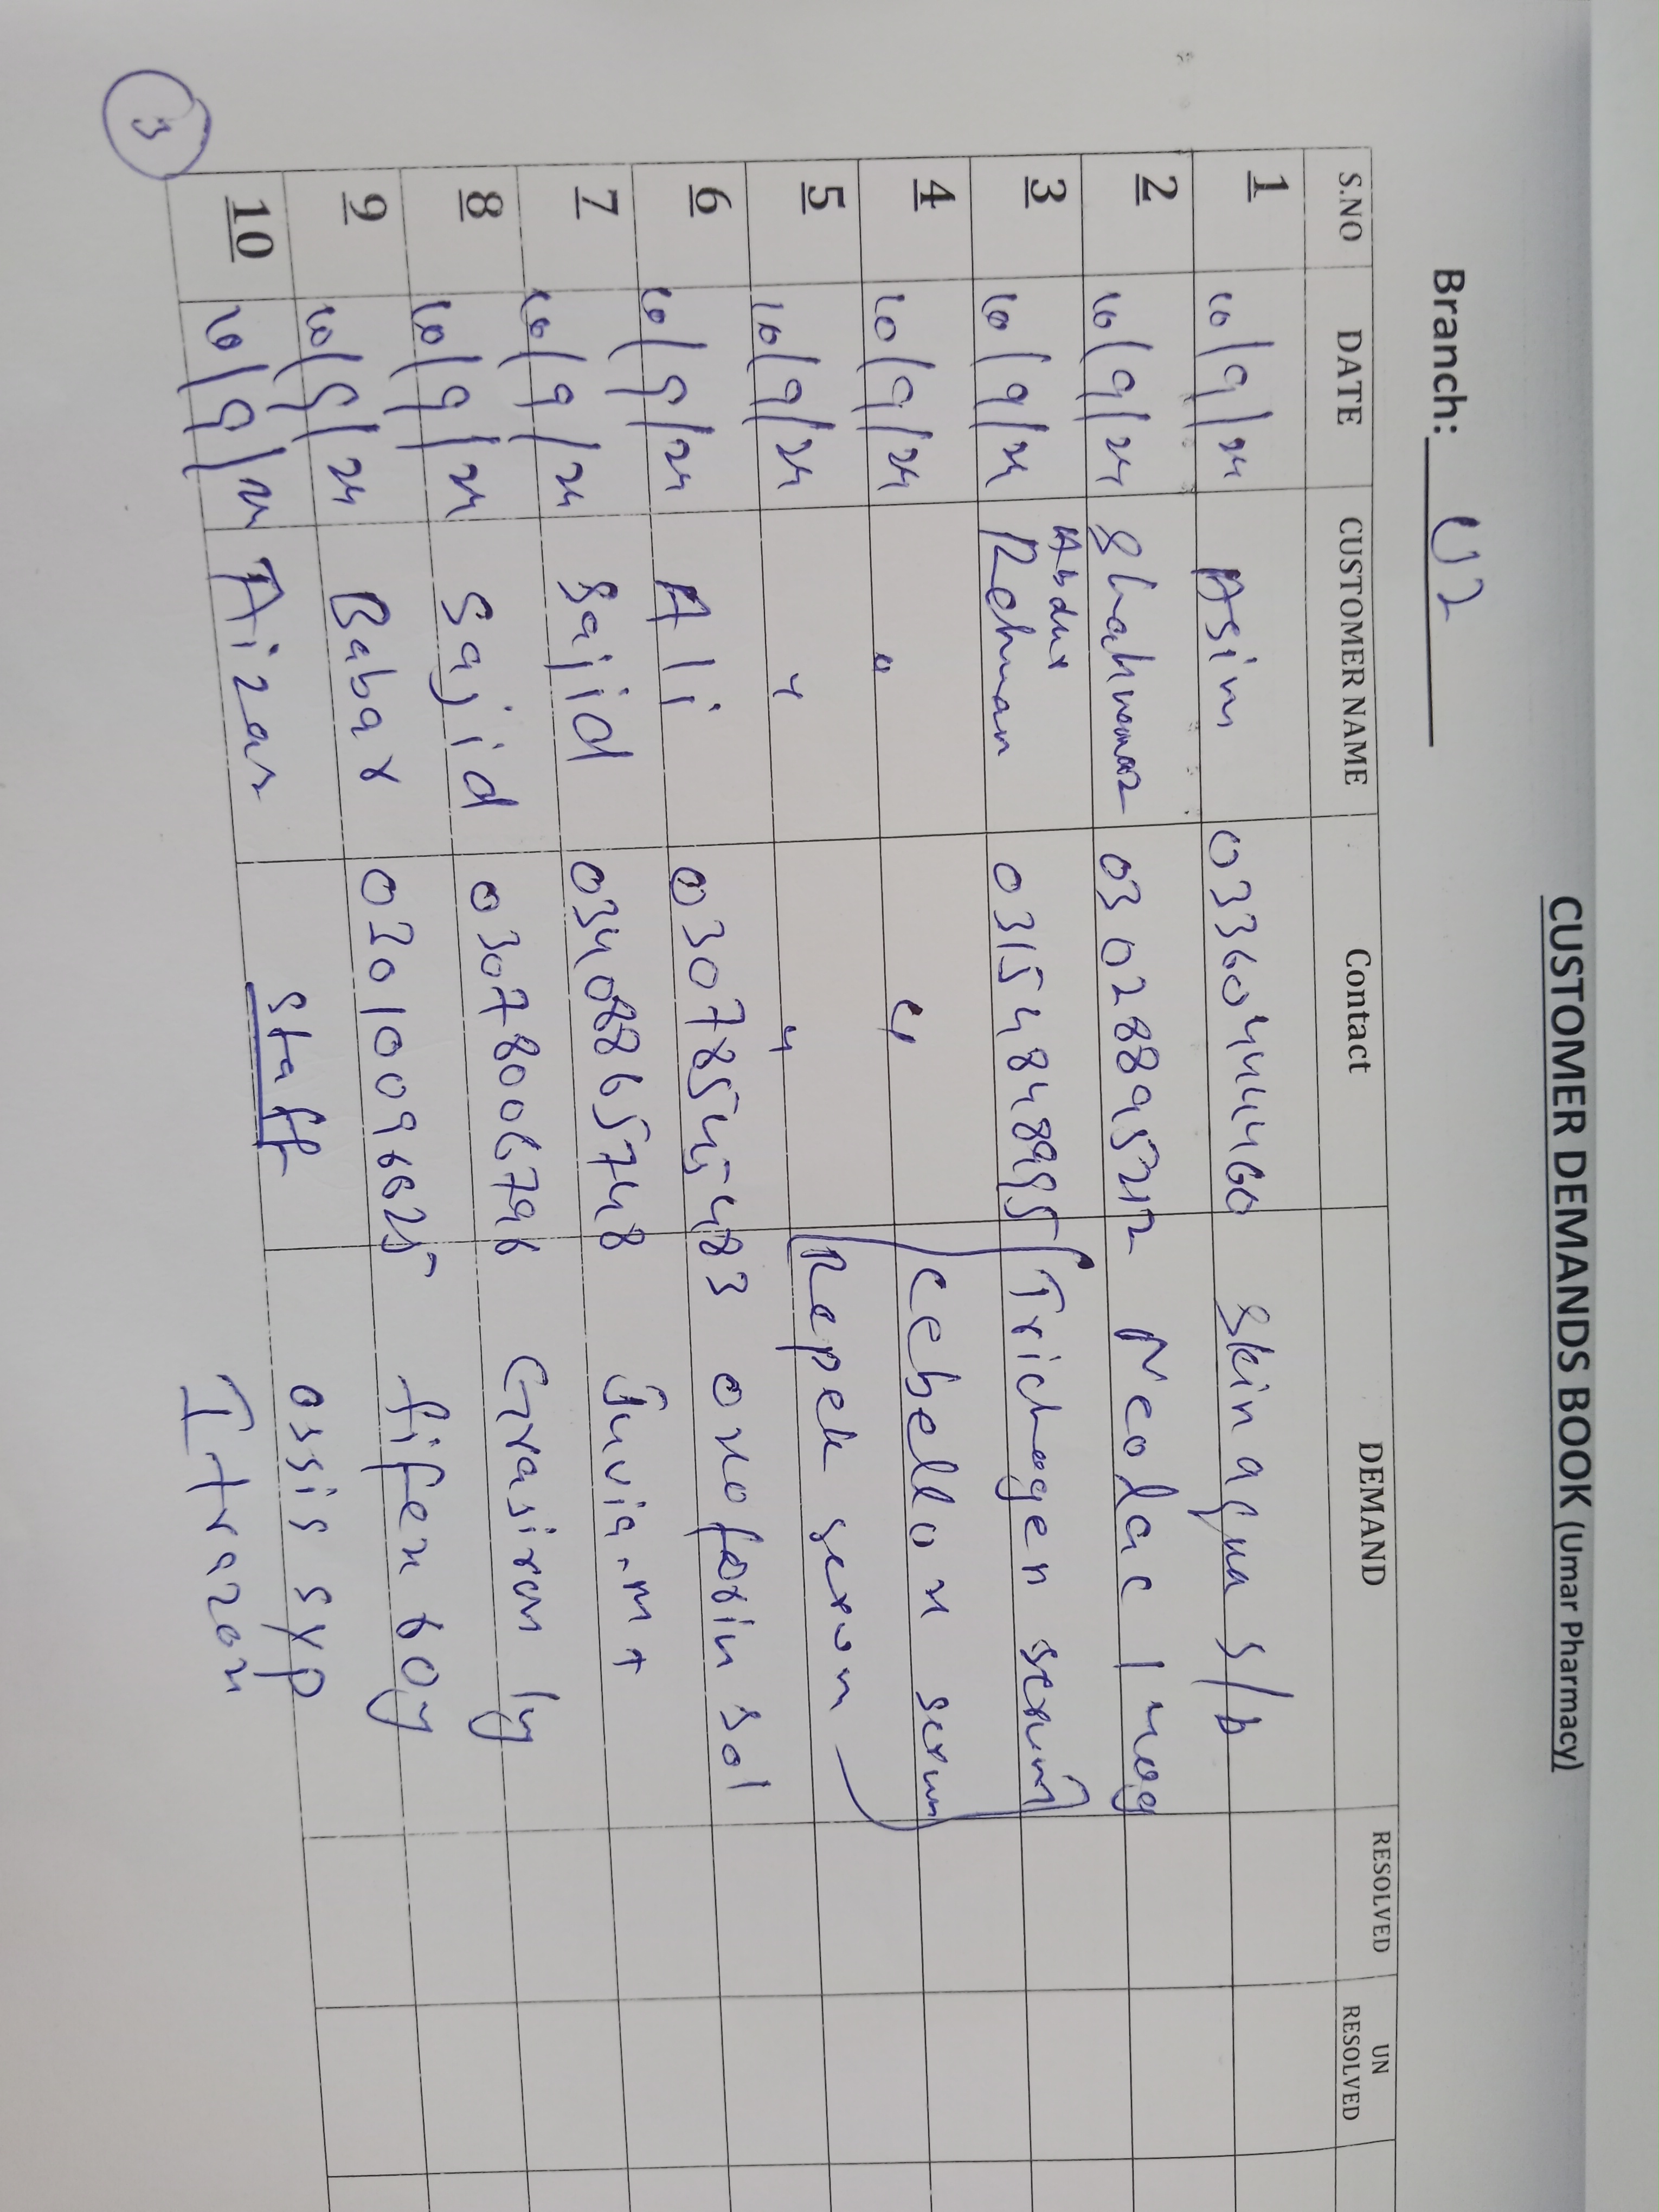 CUSTOMER DEMANDS BOOK (Umar Pharmacy)
Branch: U2
S.NO DATE CUSTOMER NAME Contact DEMAND RESOLVED UN RESOLVED
1 10/9/24 Asim 03360444460 Skin aqua s/b
2 10/9/24 Shahnawaz 03028895212 Neolac 1
3 10/9/24 Abdur Rehman 03154848995 Trichogen serum
4 10/9/24 " " cebelon serum
5 10/9/24 " " Repek serum
6 10/9/24 Ali 03078545483 oxoforin sol
7 10/9/24 Sajid 03408865748 Juvia-m+
8 10/9/24 Sajid 03078006796 Grasiron 1g
9 10/9/24 Babar 03010096625 fifex 60g
10 10/9/24 Aizan staff ossis syp
Itrazon
3